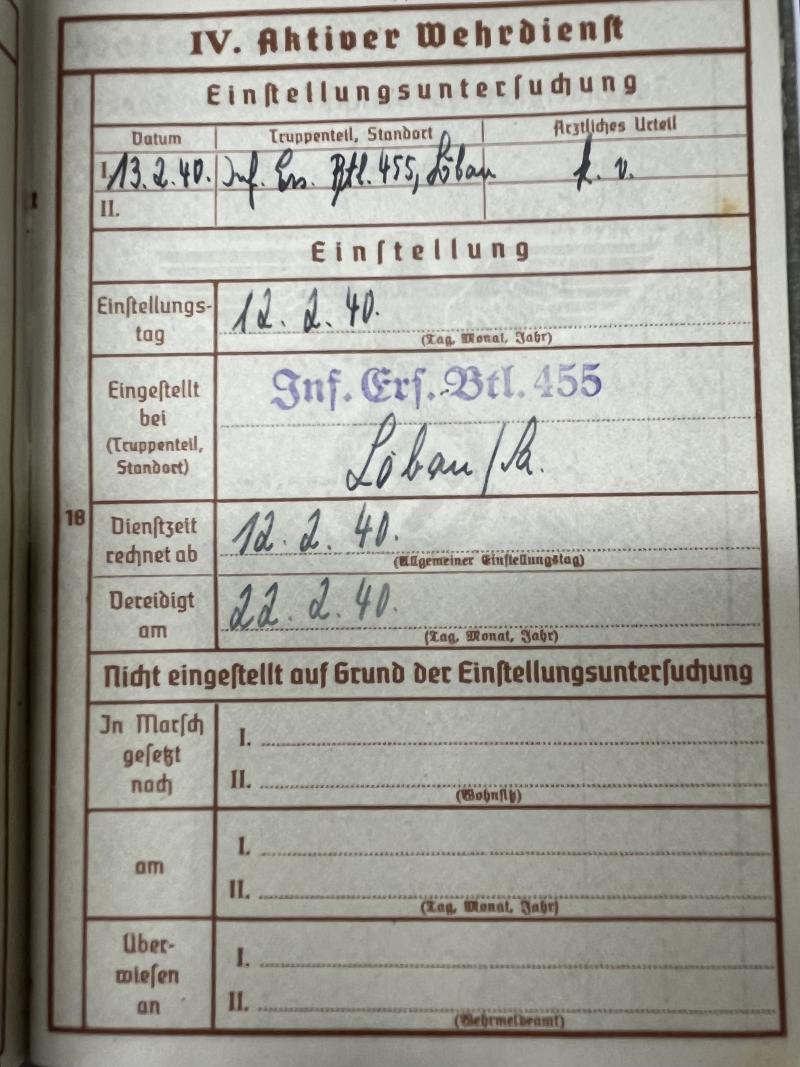 IV. Aktiver Wehrdienst
Einstellungsuntersuchung
Datum Truppenteil, Standort Ärztliches Urteil
I. 13.2.40. Inf. Ers. Btl. 455, Löbau k. v.
II.
Einstellung
Einstellungs-
tag
12. 2. 40.
(Tag, Monat, Jahr)
Eingestellt
bei
(Truppenteil,
Standort)
Inf. Ers. Btl. 455
Löbau/Sa.
18
Dienstzeit
rechnet ab
12. 2. 40.
(Allgemeiner Einstellungstag)
Vereidigt
am
22. 2. 40.
(Tag, Monat, Jahr)
Nicht eingestellt auf Grund der Einstellungsuntersuchung
In Marsch
gesetzt
nach
I.
II.
(Wohnsitz)
am
I.
II.
(Tag, Monat, Jahr)
Über-
wiesen
an
I.
II.
(Wehrmeldeamt)